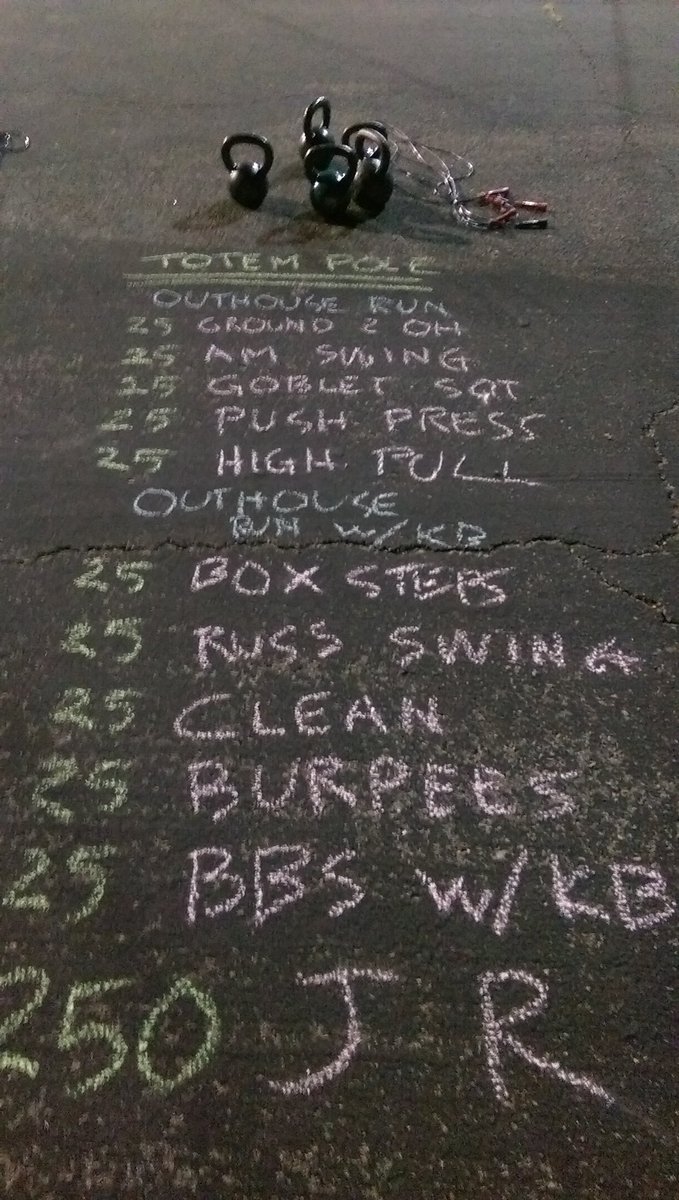 TOTEM POLE
OUTHOUSE RUN
25 GROUND 2 OH
25 AM SWING
25 GOBLET SQT
25 PUSH PRESS
25 HIGH PULL
OUTHOUSE
RUN W/KB
25 BOX STEPS
25 RUSS SWING
25 CLEAN
25 BURPEES
25 BBS W/KB
250 JR